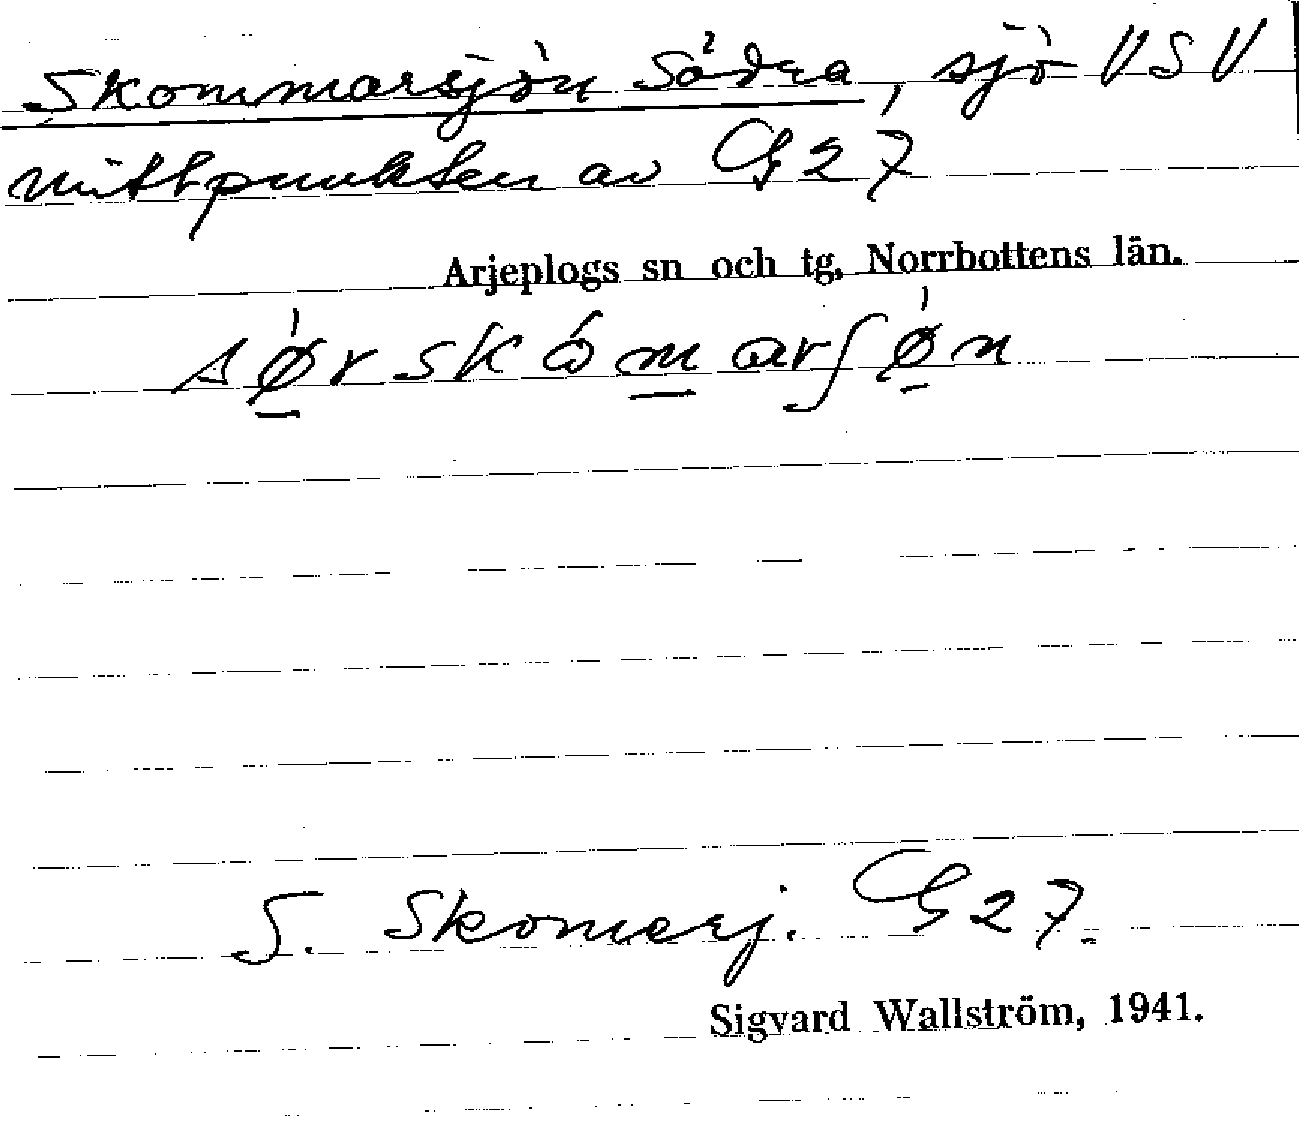 Skommarsjön Södra, sjö VSV
mittpunkten av G27
Arjeplogs sn och tg, Norrbottens län.
sø̀rskómarʃø̀n
S. Skomarj. G27.
Sigvard Wallström, 1941.